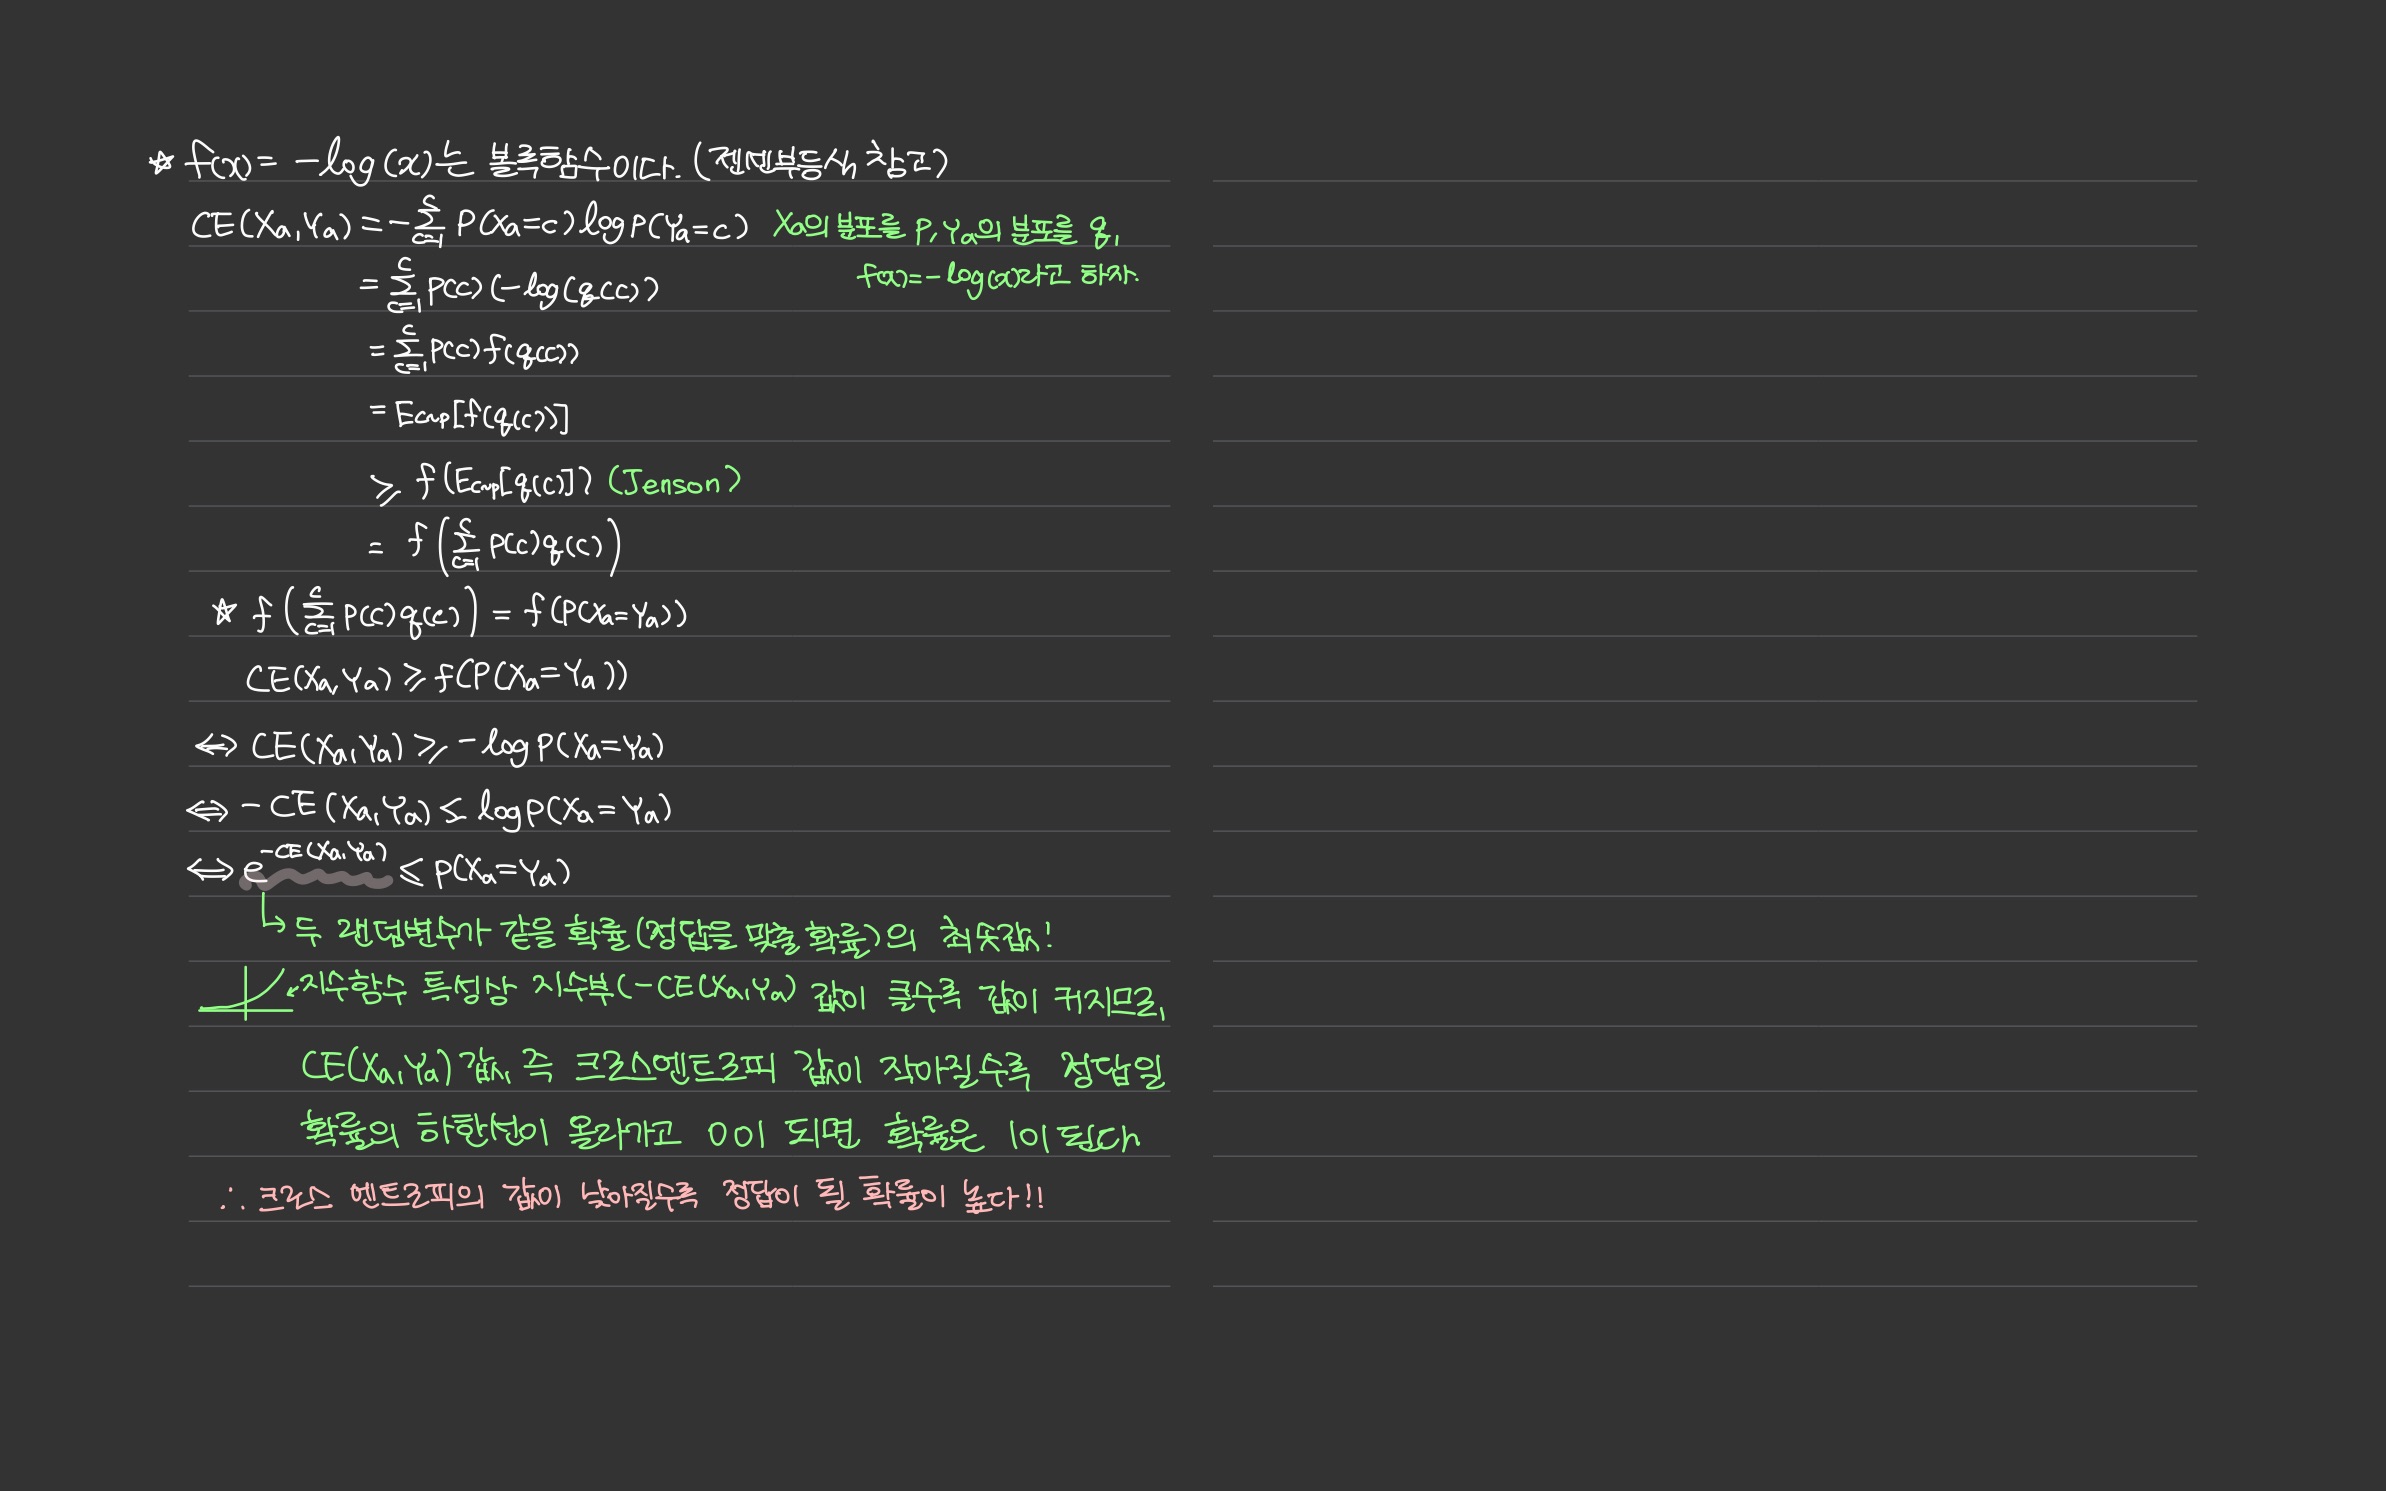 ☆ f(x) = -log(x)는 볼록함수이다. (젠센부등식 참고)
CE(Xa, Ya) = -∑_{c=1}^{C} P(Xa=c) log P(Ya=c) Xa의 분포를 P, Ya의 분포를 q,
= ∑_{c=1}^{C} P(c) (-log(q(c)) f(x) = -log(x)라고 하자.
= ∑_{c=1}^{C} P(c) f(q(c))
= E_{c~p}[f(q(c))]
≥ f(E_{c~p}[q(c)]) (Jenson)
= f(∑_{c=1}^{C} P(c)q(c))
☆ f(∑_{c=1}^{C} P(c)q(c)) = f(P(Xa=Ya))
CE(Xa, Ya) ≥ f(P(Xa=Ya))
⇔ CE(Xa, Ya) ≥ -log P(Xa=Ya)
⇔ -CE(Xa, Ya) ≤ log P(Xa=Ya)
⇔ e^{-CE(Xa, Ya)} ≤ P(Xa=Ya)
↳ 두 랜덤변수가 같을 확률(정답을 맞출 확률)의 최솟값!
지수함수 특성상 지수부(-CE(Xa, Ya) 값이 클수록 값이 커지므로,
CE(Xa, Ya) 값, 즉 크로스엔트로피 값이 작아질수록 정답일
확률의 하한선이 올라가고 0이 되면 확률은 1이 된다
∴ 크로스 엔트로피의 값이 낮아질수록 정답이 될 확률이 높다!!